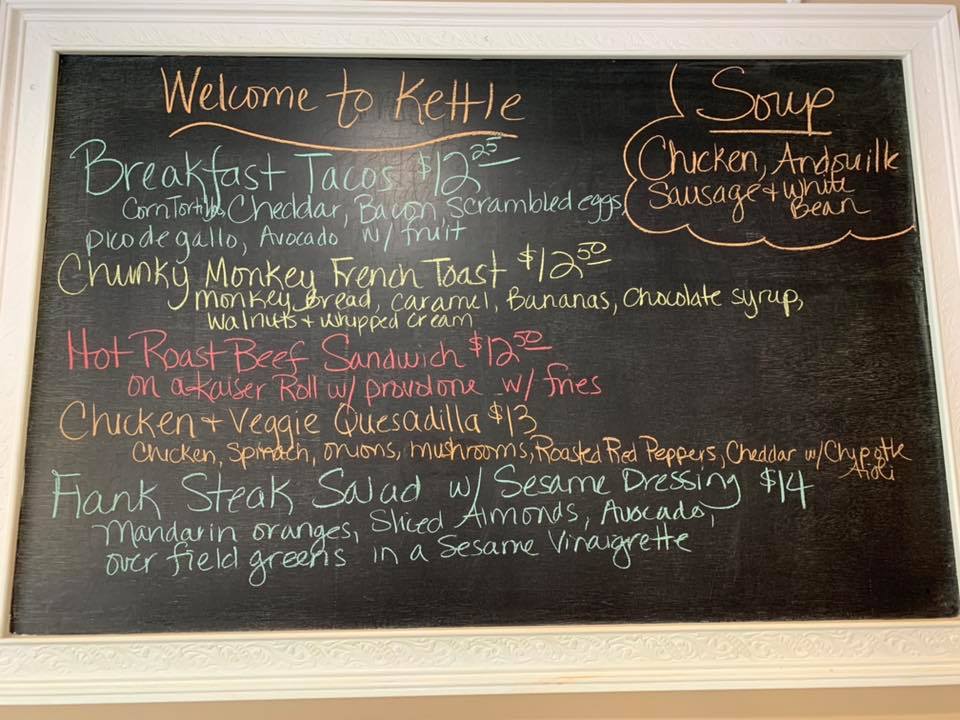 Welcome to Kettle
Breakfast Tacos $12.25
Corn Tortillas, Cheddar, Bacon, Scrambled eggs,
pico de gallo, Avocado w/ fruit
Chunky Monkey French Toast $12.50
monkey bread, caramel, Bananas, Chocolate syrup,
walnuts + whipped cream
Hot Roast Beef Sandwich $12.50
on a Kaiser Roll w/ provolone w/ fries
Chicken + Veggie Quesadilla $13
Chicken, Spinach, onions, mushrooms, Roasted Red Peppers, Cheddar w/ Chypotle
Aioli
Flank Steak Salad w/ Sesame Dressing $14
Mandarin oranges, Sliced Almonds, Avocado,
over field greens in a Sesame Vinaigrette
Soup
Chicken, Andouille
Sausage + White
Bean